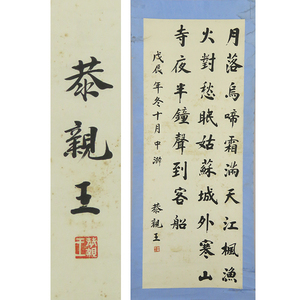 恭親王
月落烏啼霜滿天江楓漁
火對愁眠姑蘇城外寒山
寺夜半鐘聲到客船
戊辰年冬十月中澣 恭親王